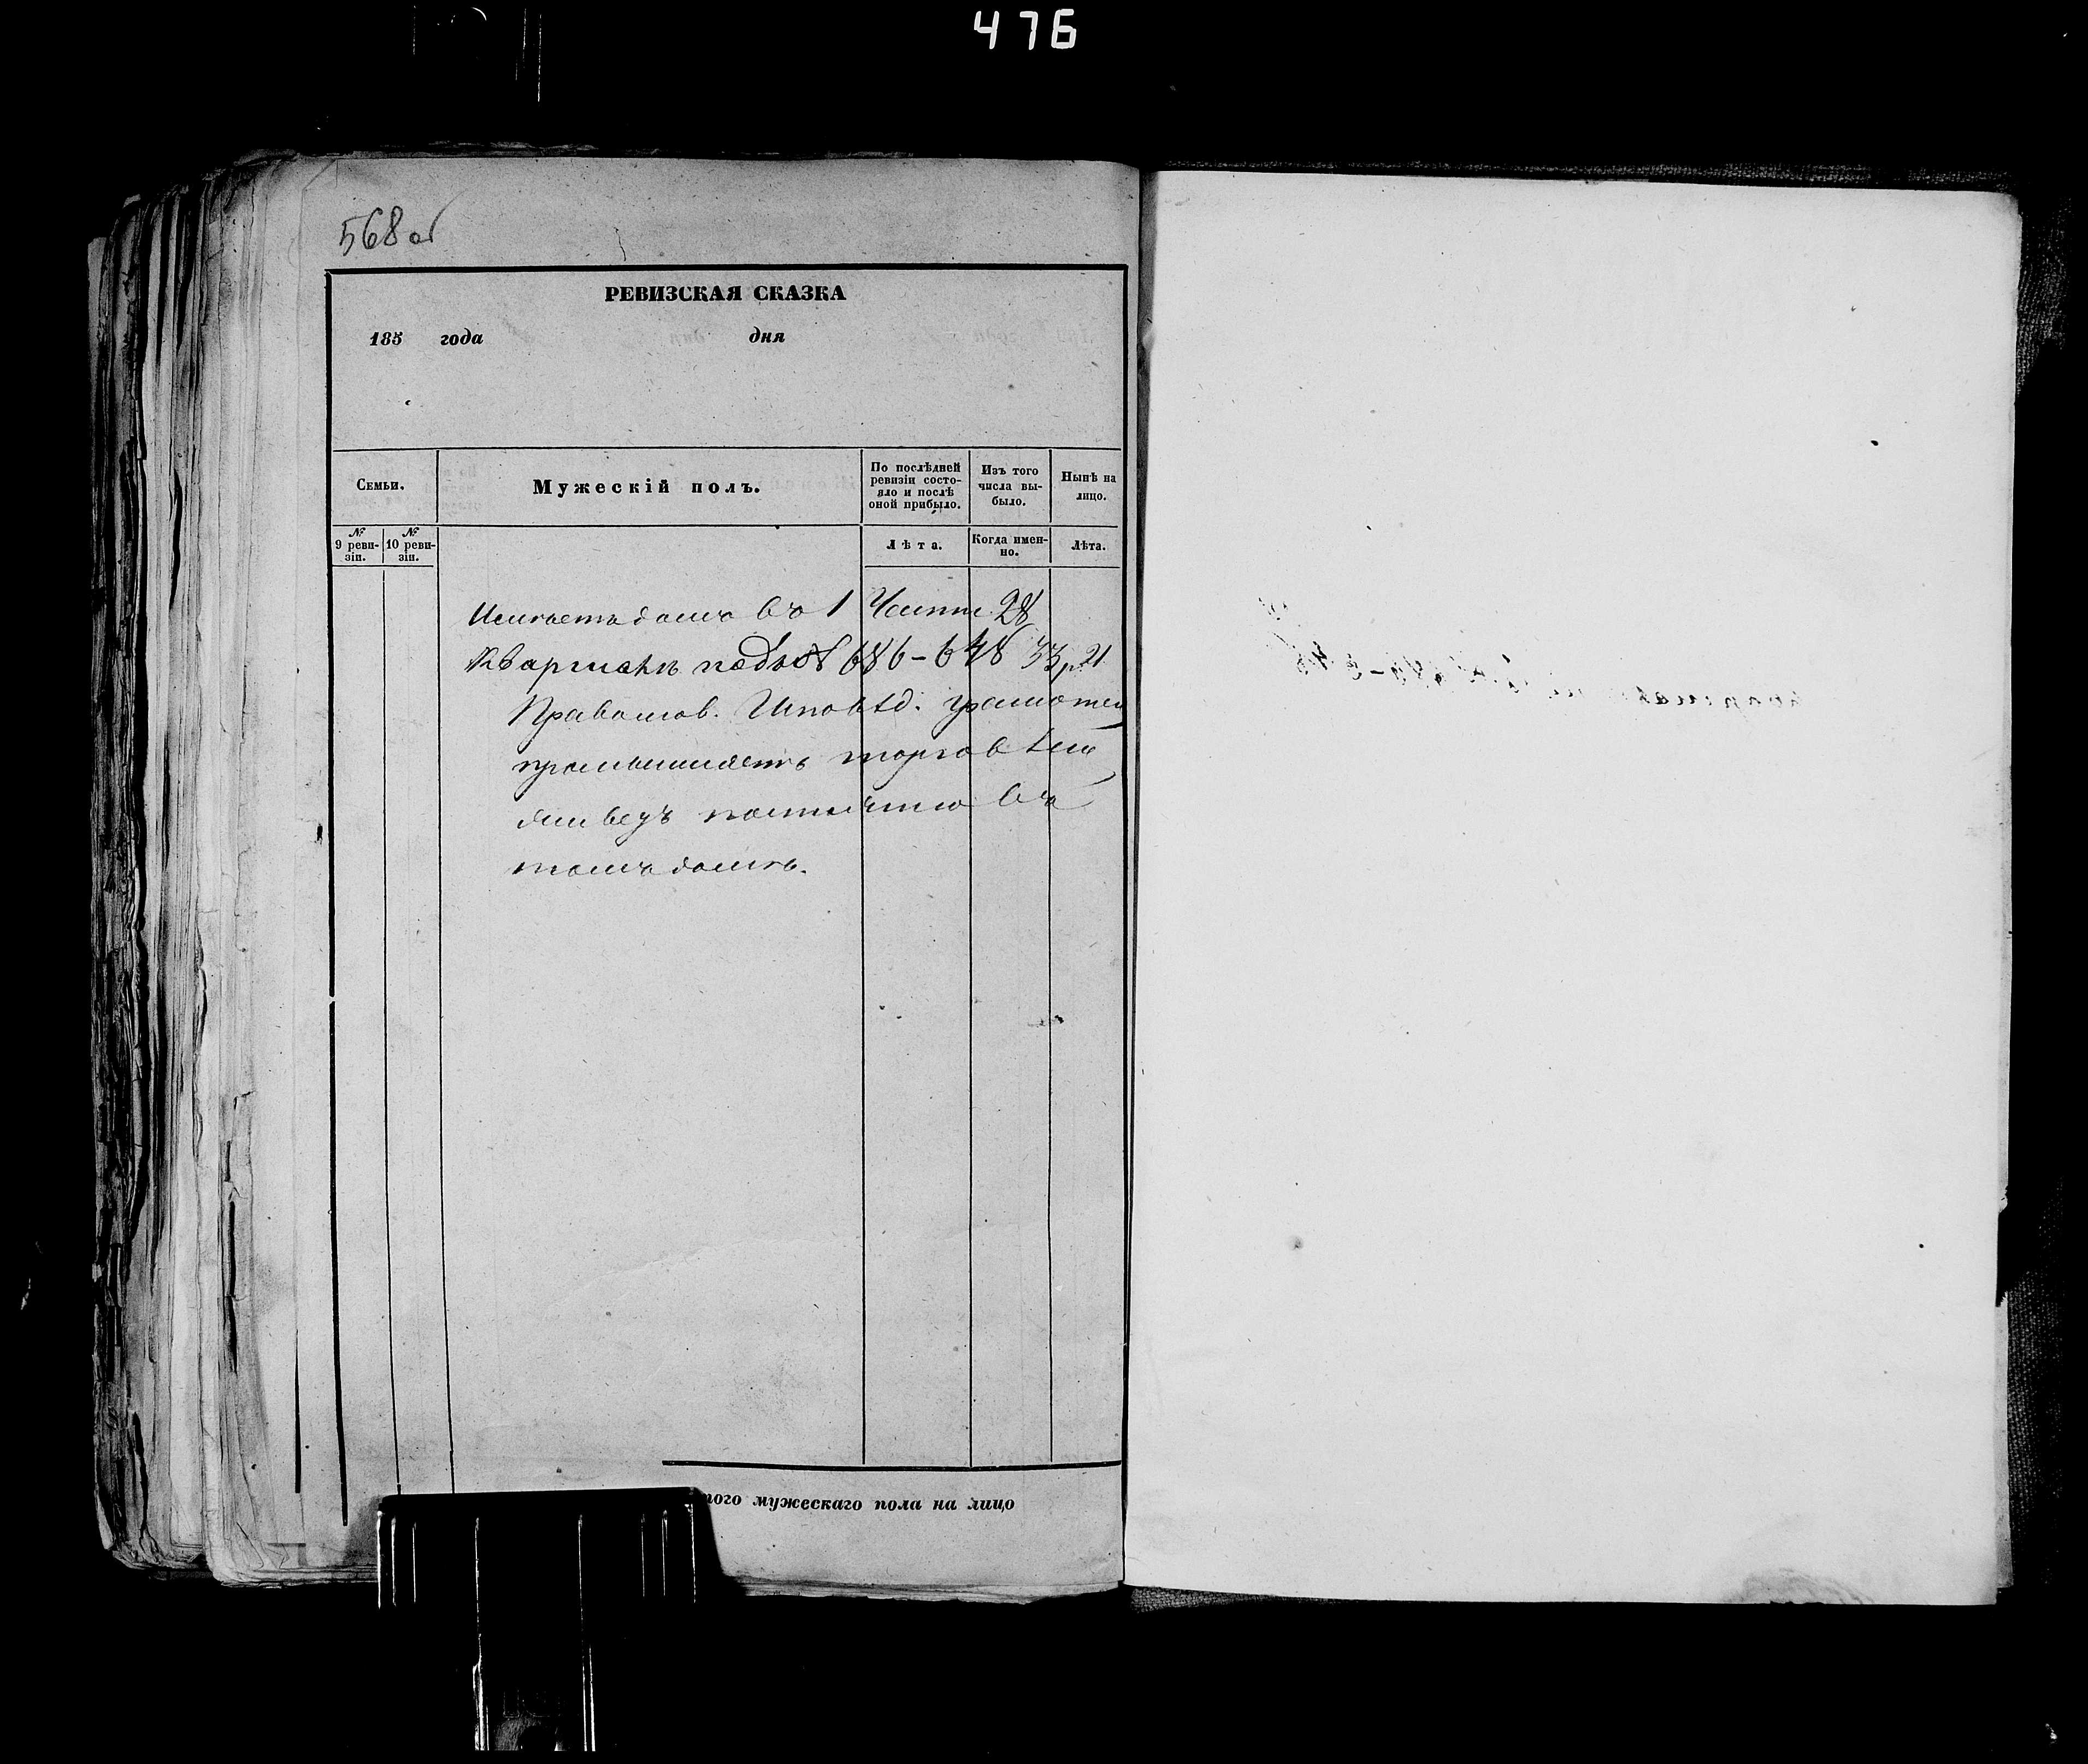 476
568 об
РЕВИЗСКАЯ СКАЗКА
185 года дня
Семьи.
Мужескій полъ.
По послѣдней ревизіи состояло и послѣ оной прибыло.
Изъ того числа выбыло.
Нынѣ на лицо.
№ 9 ревизіи.
№ 10 ревизіи.
Лѣта.
Когда именно.
Лѣта.
Имѣетъ домъ въ 1 Части 2й
Кварталѣ подъ № 686-648 33 р 21
Правослов. Исповѣд. грамотен
промышляетъ торговлею
живетъ въ
томъ домѣ.
того мужескаго пола на лицо